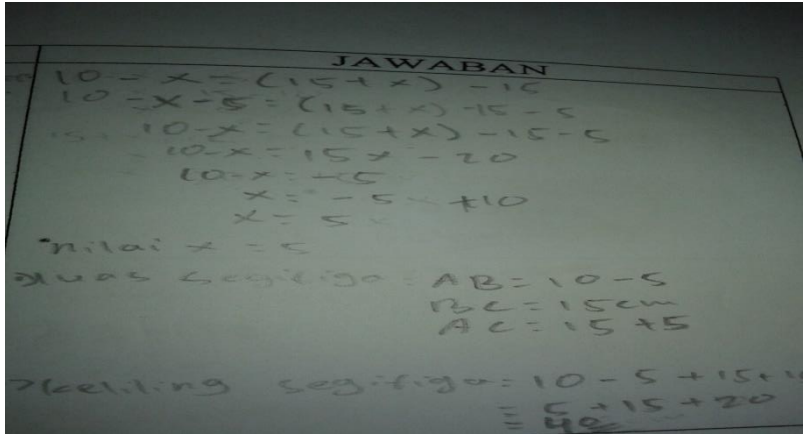 JAWABAN
10 - x = (15 + x) - 15
10 - x - 5 = (15 + x) - 15 - 5
10 - x = (15 + x) - 15 - 5
10 - x = 15x - 20
10 - x = -5
x = -5 +10
x = 5
nilai x = 5
luas segitiga : AB = 10 - 5
BC = 15 cm
AC = 15 + 5
keliling segitiga = 10 - 5 + 15 +
= 5 + 15 + 20
= 40